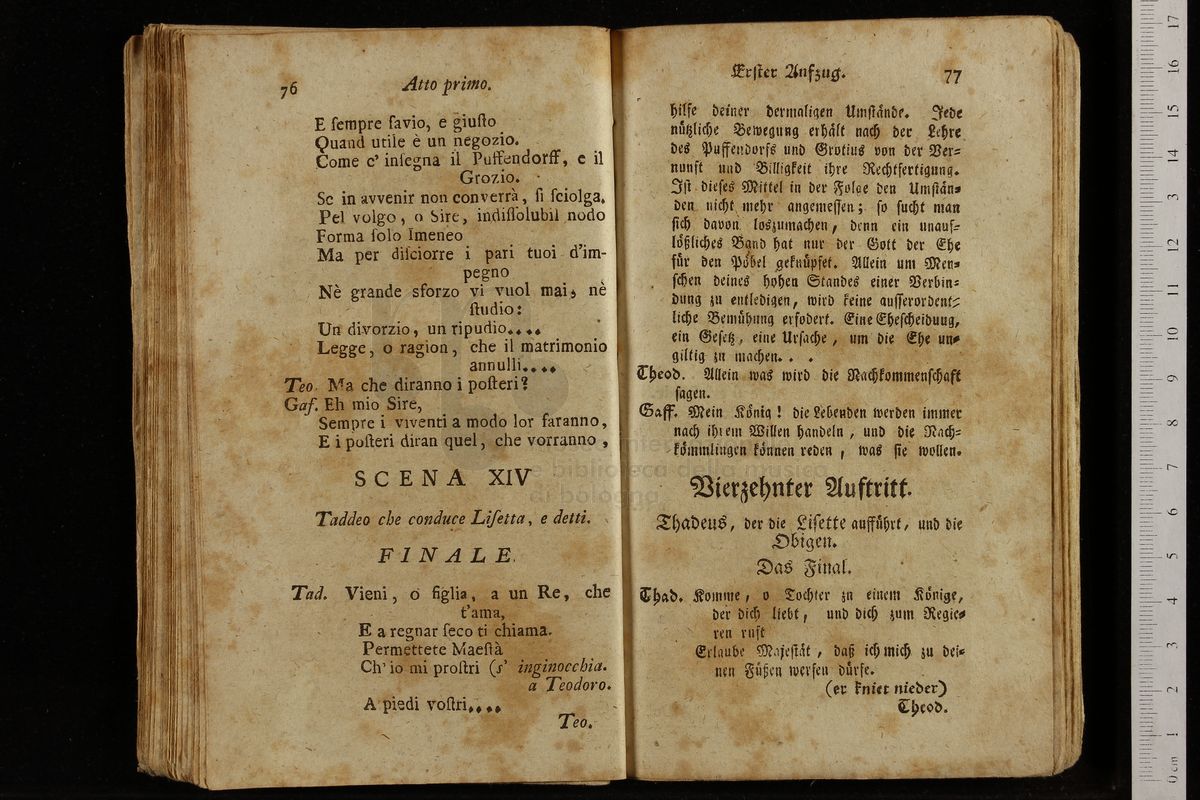 76 Atto primo.
E ſempre ſavio, e giuſto
Quand utile è un negozio.
Come c' inſegna il Puffendorff, e il
Grozio.
Se in avvenir non converrà, ſi ſciolga.
Pel volgo, o Sire, indiſſolubil nodo
Forma ſolo Imeneo
Ma per diſciorre i pari tuoi d'im-
pegno
Nè grande sforzo vi vuol mai, nè
ſtudio:
Un divorzio, un ripudio....
Legge, o ragion, che il matrimonio
annulli....
Teo. Ma che diranno i poſteri?
Gaf. Eh mio Sire,
Sempre i viventi a modo lor faranno,
E i poſteri diran quel, che vorranno,
SCENA XIV
Taddeo che conduce Liſetta, e detti.
FINALE.
Tad. Vieni, o figlia, a un Re, che
t'ama,
E a regnar ſeco ti chiama.
Permettete Maeſtà
Ch' io mi proſtri (s' inginocchia.
a Teodoro.
A piedi voſtri....
Teo.
Erſter Aufzug. 77
hilfe deiner dermaligen Umſtände. Jede
nützliche Bewegung erhält nach der Lehre
des Puffendorfs und Grotius von der Ver=
nunft und Billigkeit ihre Rechtfertigung.
Iſt dieſes Mittel in der Folge den Umſtän=
den nicht mehr angemeſſen; ſo ſucht man
ſich davon loszumachen, denn ein unauf=
lößliches Band hat nur der Gott der Ehe
für den Pöbel geknüpfet. Allein um Men=
ſchen deines hohen Standes einer Verbin=
dung zu entledigen, wird keine auſſerordent=
liche Bemühung erfodert. Eine Eheſcheidung,
ein Geſetz, eine Urſache, um die Ehe un=
giltig zu machen. . .
Theod. Allein was wird die Nachkommenſchaft
ſagen.
Gaff. Mein König! die Lebenden werden immer
nach ihrem Willen handeln, und die Nach=
kömmlingen können reden, was ſie wollen.
Vierzehnter Auftritt.
Thadeus, der die Liſette aufführt, und die
Obigen.
Das Final.
Thad. Komme, o Tochter zu einem Könige,
der dich liebt, und dich zum Regie=
ren ruft
Erlaube Majeſtät, daß ich mich zu dei=
nen Füßen werfen dürfe.
(er kniet nieder)
Theod.
e biblioteca della musica
di bologna
0 cm 1 2 3 4 5 6 7 8 9 10 11 12 13 14 15 16 17